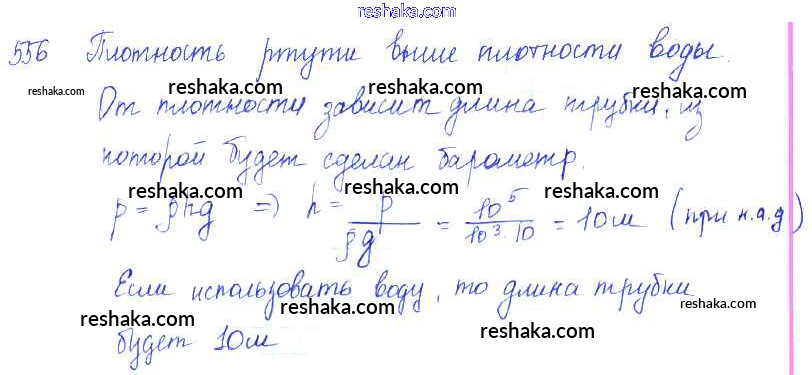 reshaka.com
556 Плотность ртути выше плотности воды.
reshaka.com reshaka.com reshaka.com
От плотности зависит длина трубки, из
которой будет сделан барометр.
reshaka.com reshaka.com reshaka.com
p = ρhg => h = p/ρg = 10⁵/10³·10 = 10м (при н.а.д)
Если использовать воду, то длина трубки
reshaka.com reshaka.com reshaka.com
будет 10м